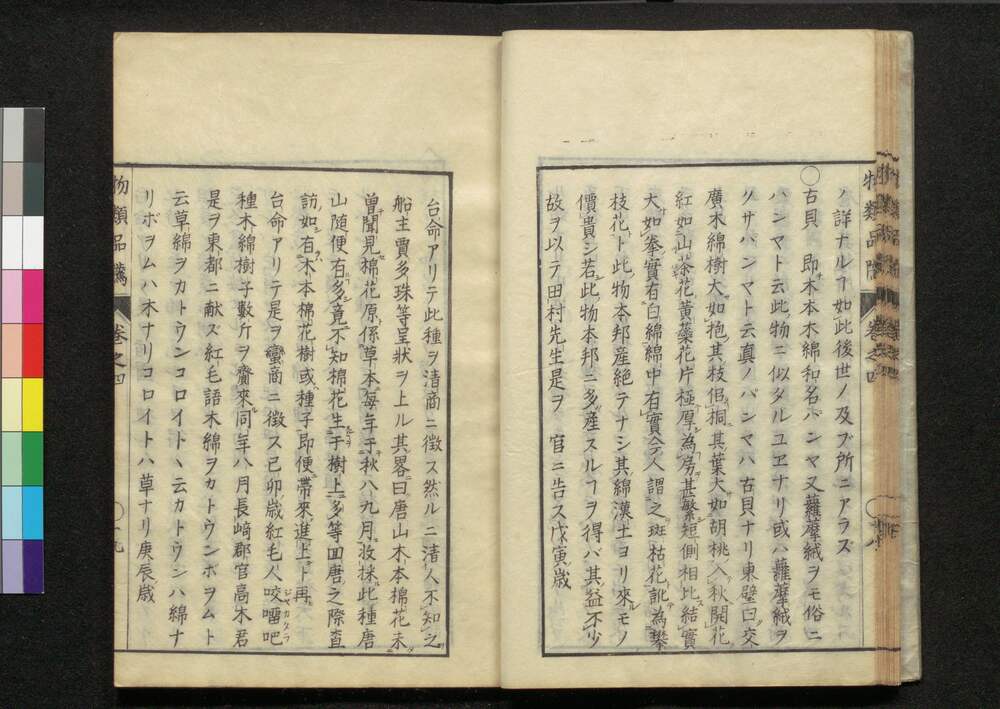 物類品隲 卷之四
ノ詳ナルヿ如此後世ノ及ブ所ニアラズ
〇古貝 即木本木綿和名パンヤ又蘿藦絨ヲモ俗ニ
パンマト云此物ニ似タルユヱナリ或ハ蘿藦絨ヲ
クサパンマト云真ノパンマハ古貝ナリ東壁曰交
廣木綿樹大如抱其枝佀桐其葉大如胡桃入秋開花
紅如山茶花黄蘂花片極厚為房甚繁短側相比結實
大如拳實有白綿綿中有實今人謂之斑枯花訛為攀
枝花ト此物本邦産絶テナシ其綿漢土ヨリ來ルモノ
價貴シ若此物本邦ニ多産スルヿヲ得バ其益不少
故ヲ以テ田村先生是ヲ 官ニ告ス戊寅歳
台命アリテ此種ヲ清商ニ徴ス然ルニ清人不知之
船主賈多珠等呈狀ヲ上ル其畧曰唐山木本棉花未
曽聞見棉花原係草本毎年于秋八九月妝採此種唐
山隨便有多竟不知棉花生于樹上多等回唐之際査
訪如有木本棉花樹或種子即便帶來進上ト再
台命アリテ是ヲ蠻商ニ徴ス己卯歳紅毛人咬𠺕吧ジヤガタラ
種木綿樹子數斤ヲ齎來同年八月長﨑郡官高木君
是ヲ東都ニ献ズ紅毛語木綿ヲカトウンボヲムト
云草綿ヲカトウンコロイトヽ云カトウンハ綿ナ
リボヲムハ木ナリコロイトハ草ナリ庚辰歳
物類品隲 卷之四 〇十九